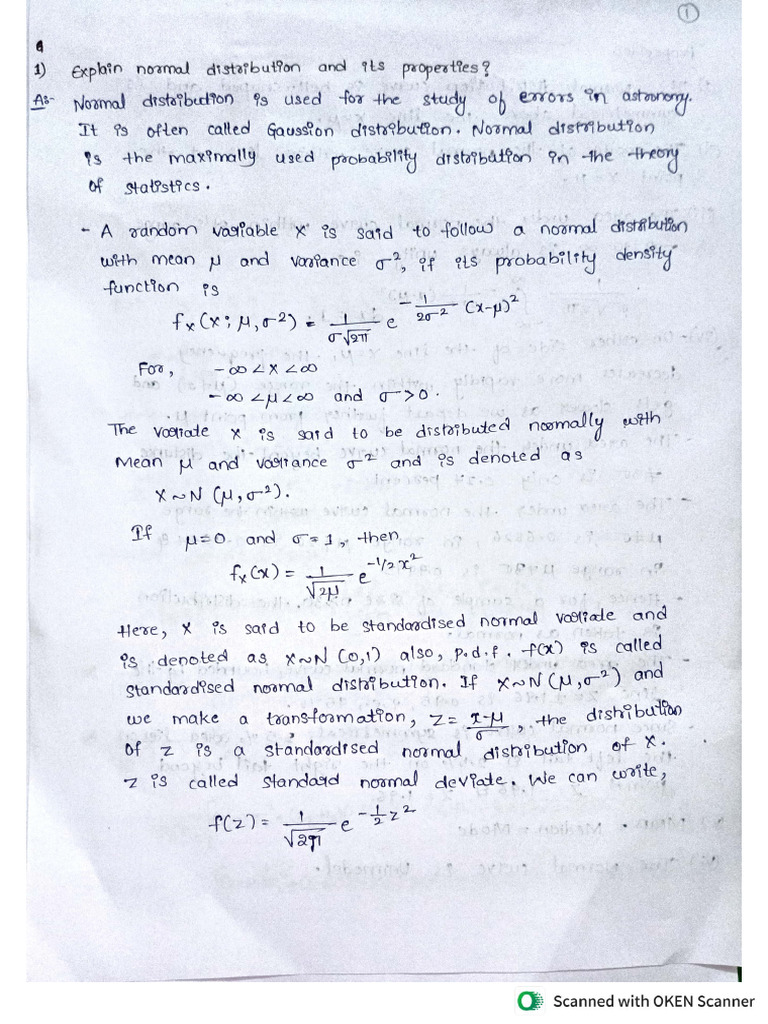 ①
q
1) Explain normal distribution and its properties?
As:- Normal distribution is used for the study of errors in astronomy.
It is often called Gaussion distribution. Normal distribution
is the maximally used probability distribution in the theory
of statistics.
- A random variable X is said to follow a normal distribution
with mean μ and variance σ², if its probability density
function is
fₓ(x; μ, σ²) = 1/(σ√2π) e^(-1/(2σ²) (x-μ)²)
For, -∞ < x < ∞
-∞ < μ < ∞ and σ > 0.
The variate X is said to be distributed normally with
Mean μ and variance σ² and is denoted as
X ~ N (μ, σ²).
If μ=0 and σ=1, then
fₓ(x) = 1/√2μ e^(-1/2 x²)
Here, X is said to be standardised normal variate and
is denoted as X~N (0,1) also, p.d.f. f(x) is called
standardised normal distribution. If X~N(μ, σ²) and
we make a transformation, Z = (x-μ)/σ, the distribution
of Z is a standardised normal distribution of X.
Z is called standard normal deviate. We can write,
f(z) = 1/√2π e^(-1/2 z²)
Scanned with OKEN Scanner